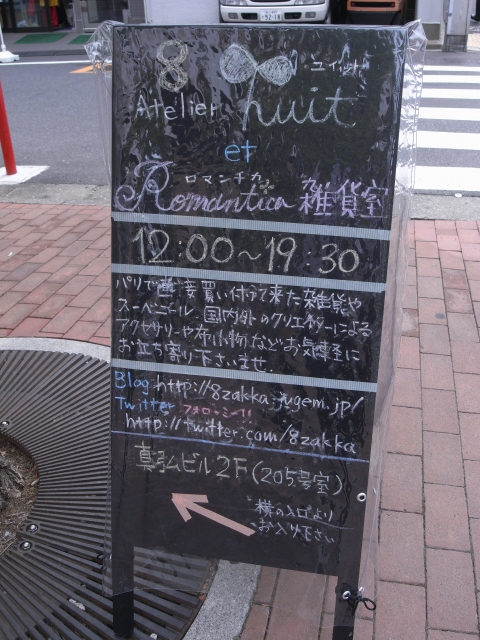 8 ユイット
Atelier huit
et
ロマンチカ
Romantica 雑貨室
12:00〜19:30
パリで直接買い付けて来た雑貨や
スーベニール、国内外のクリエイターによる
アクセサリーや布小物などお気軽に
お立ち寄り下さいませ.
Blog http://8zakka.jugem.jp/
Twitter フォローミー!!
http://twitter.com/8zakka
真弘ビル2F(205号室)
横の入口より
お入り下さい